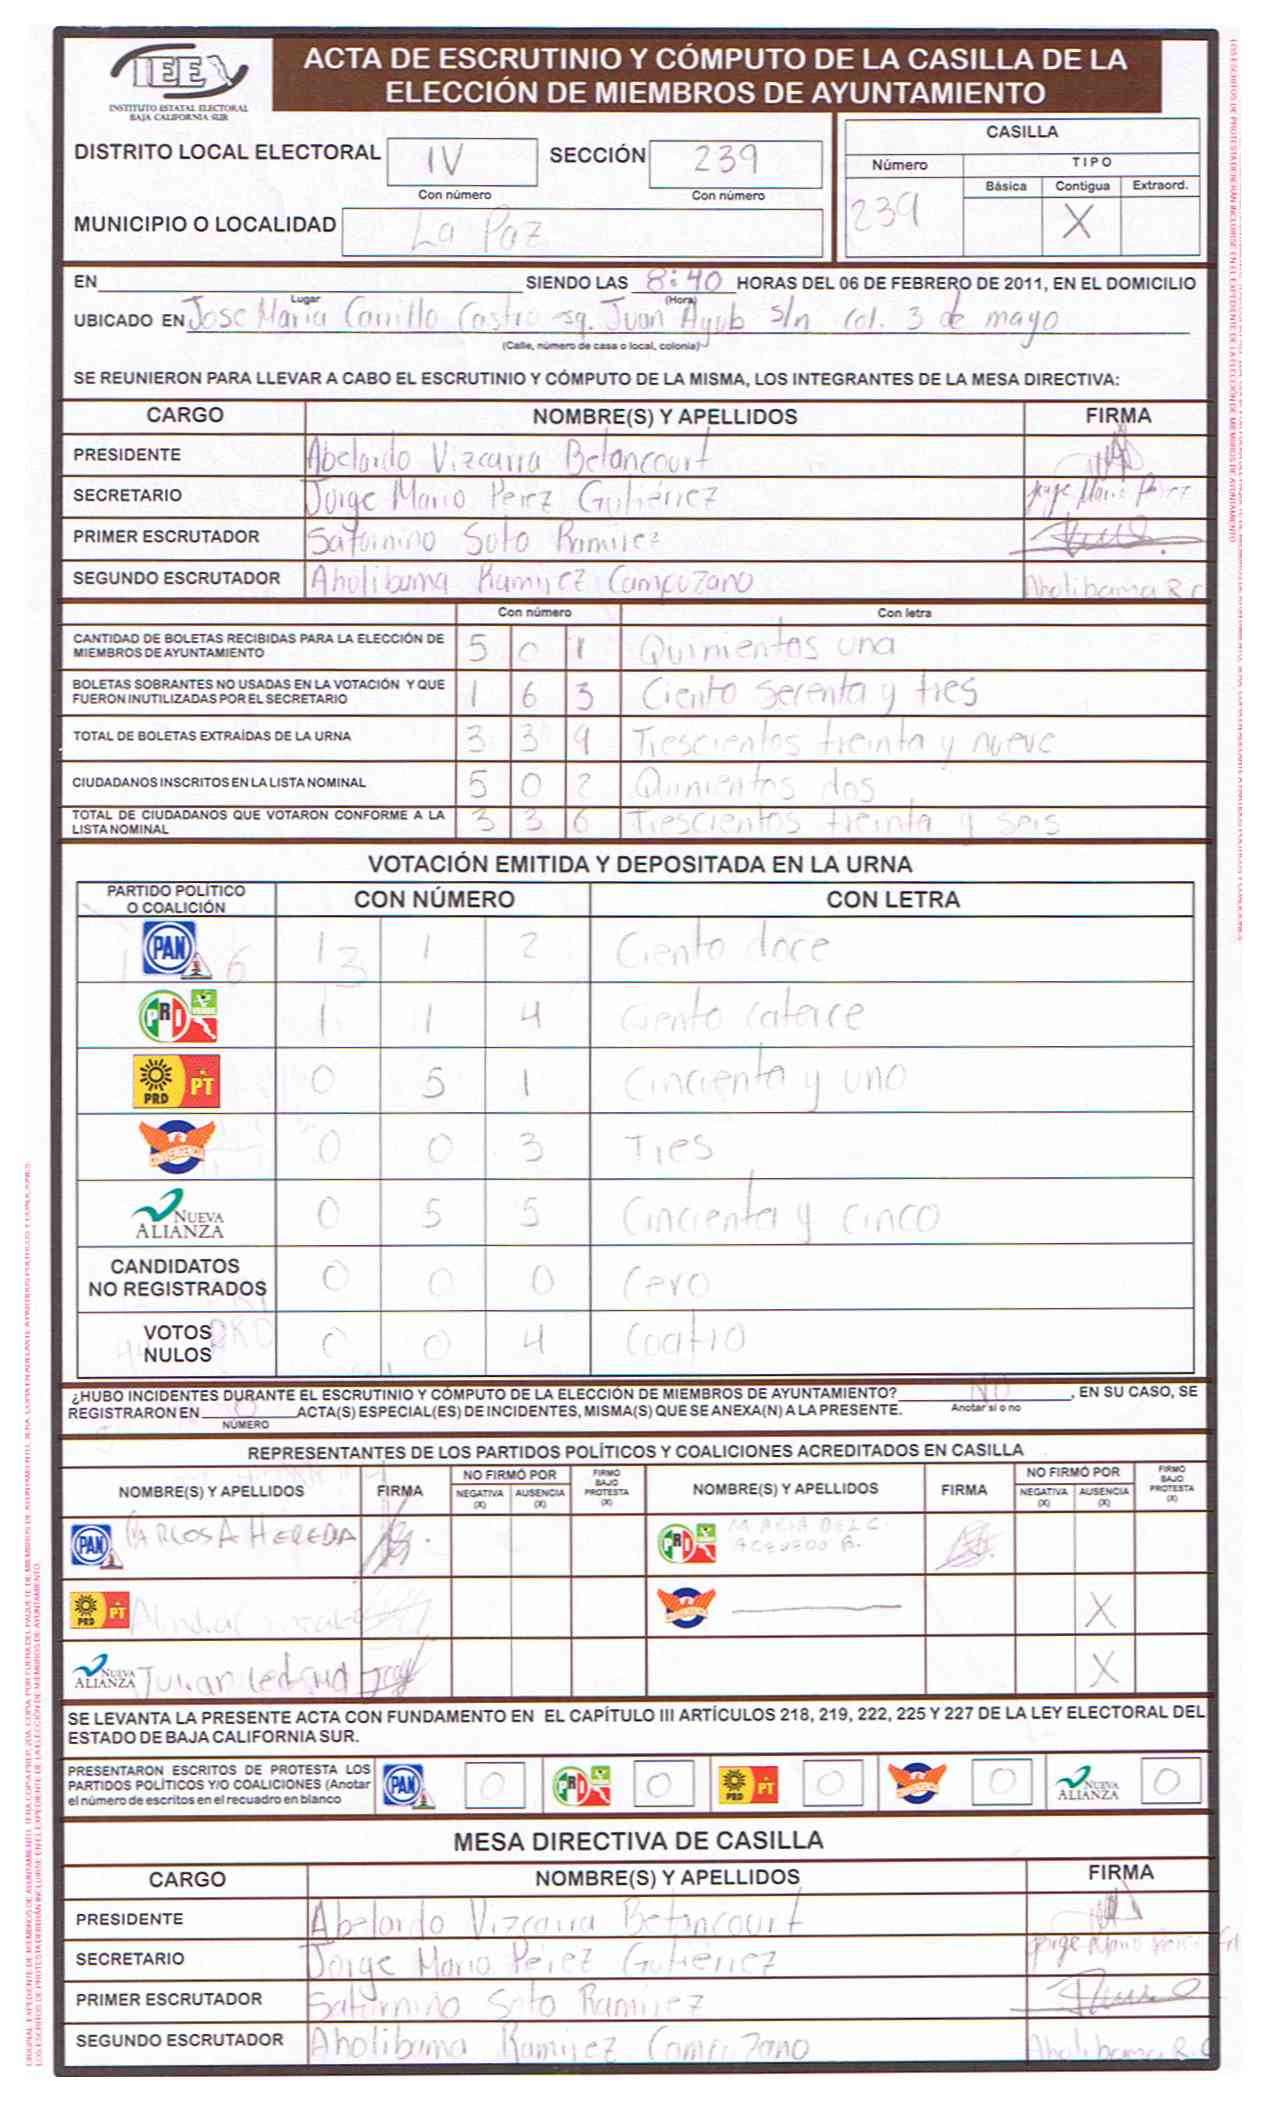 IEE
INSTITUTO ESTATAL ELECTORAL
BAJA CALIFORNIA SUR
ACTA DE ESCRUTINIO Y CÓMPUTO DE LA CASILLA DE LA
ELECCIÓN DE MIEMBROS DE AYUNTAMIENTO
DISTRITO LOCAL ELECTORAL IV SECCIÓN 239
Con número Con número
MUNICIPIO O LOCALIDAD La Paz
CASILLA
Número TIPO
Básica Contigua Extraord.
239 X
EN SIENDO LAS 8:40 HORAS DEL 06 DE FEBRERO DE 2011, EN EL DOMICILIO
Lugar (Hora)
UBICADO EN Jose Maria Carrillo Castro esq. Juan Ayub s/n col. 3 de mayo
(Calle, número de casa o local, colonia)
SE REUNIERON PARA LLEVAR A CABO EL ESCRUTINIO Y CÓMPUTO DE LA MISMA, LOS INTEGRANTES DE LA MESA DIRECTIVA:
CARGO NOMBRE(S) Y APELLIDOS FIRMA
PRESIDENTE Abelardo Vizcarra Betancourt
SECRETARIO Jorge Mario Pérez Gutiérrez Jorge Mario Pérez
PRIMER ESCRUTADOR Saturnino Soto Ramirez
SEGUNDO ESCRUTADOR Aholibama Ramirez Campuzano Aholibama R.C
Con número Con letra
CANTIDAD DE BOLETAS RECIBIDAS PARA LA ELECCIÓN DE
MIEMBROS DE AYUNTAMIENTO 5 0 1 Quinientos una
BOLETAS SOBRANTES NO USADAS EN LA VOTACIÓN Y QUE
FUERON INUTILIZADAS POR EL SECRETARIO 1 6 3 Ciento serenta y tres
TOTAL DE BOLETAS EXTRAÍDAS DE LA URNA 3 3 9 Trescientos treinta y nueve
CIUDADANOS INSCRITOS EN LA LISTA NOMINAL 5 0 2 Quinientos dos
TOTAL DE CIUDADANOS QUE VOTARON CONFORME A LA
LISTA NOMINAL 3 3 6 Trescientos treinta y seis
VOTACIÓN EMITIDA Y DEPOSITADA EN LA URNA
PARTIDO POLÍTICO
O COALICIÓN CON NÚMERO CON LETRA
PAN 1 1 2 Ciento doce
PRI VERDE 1 1 4 Ciento catorce
PRD PT 0 5 1 Cincuenta y uno
CONVERGENCIA 0 0 3 Tres
NUEVA ALIANZA 0 5 5 Cincuenta y cinco
CANDIDATOS
NO REGISTRADOS 0 0 0 Cero
VOTOS
NULOS 0 0 4 Cuatro
¿HUBO INCIDENTES DURANTE EL ESCRUTINIO Y CÓMPUTO DE LA ELECCIÓN DE MIEMBROS DE AYUNTAMIENTO? NO, EN SU CASO, SE
Anotar sí o no
REGISTRARON EN 0 ACTA(S) ESPECIAL(ES) DE INCIDENTES, MISMA(S) QUE SE ANEXA(N) A LA PRESENTE.
NÚMERO
REPRESENTANTES DE LOS PARTIDOS POLÍTICOS Y COALICIONES ACREDITADOS EN CASILLA
NOMBRE(S) Y APELLIDOS FIRMA NO FIRMÓ POR NEGATIVA (X) AUSENCIA (X) FIRMÓ BAJO PROTESTA (X) NOMBRE(S) Y APELLIDOS FIRMA NO FIRMÓ POR NEGATIVA (X) AUSENCIA (X) FIRMÓ BAJO PROTESTA (X)
PAN CARLOS A HEREDIA PRI MARIA DEL C. ACEVEDO B.
PRD PT CONVERGENCIA X
NUEVA ALIANZA Julian X
SE LEVANTA LA PRESENTE ACTA CON FUNDAMENTO EN EL CAPÍTULO III ARTÍCULOS 218, 219, 222, 225 Y 227 DE LA LEY ELECTORAL DEL
ESTADO DE BAJA CALIFORNIA SUR.
PRESENTARON ESCRITOS DE PROTESTA LOS
PARTIDOS POLÍTICOS Y/O COALICIONES (Anotar
el número de escritos en el recuadro en blanco
PAN 0 PRI 0 PRD PT 0 CONVERGENCIA 0 NUEVA ALIANZA 0
MESA DIRECTIVA DE CASILLA
CARGO NOMBRE(S) Y APELLIDOS FIRMA
PRESIDENTE Abelardo Vizcarra Betancourt
SECRETARIO Jorge Mario Pérez Gutiérrez
PRIMER ESCRUTADOR Saturnino Soto Ramirez
SEGUNDO ESCRUTADOR Aholibama Ramirez Campuzano Aholibama R.C